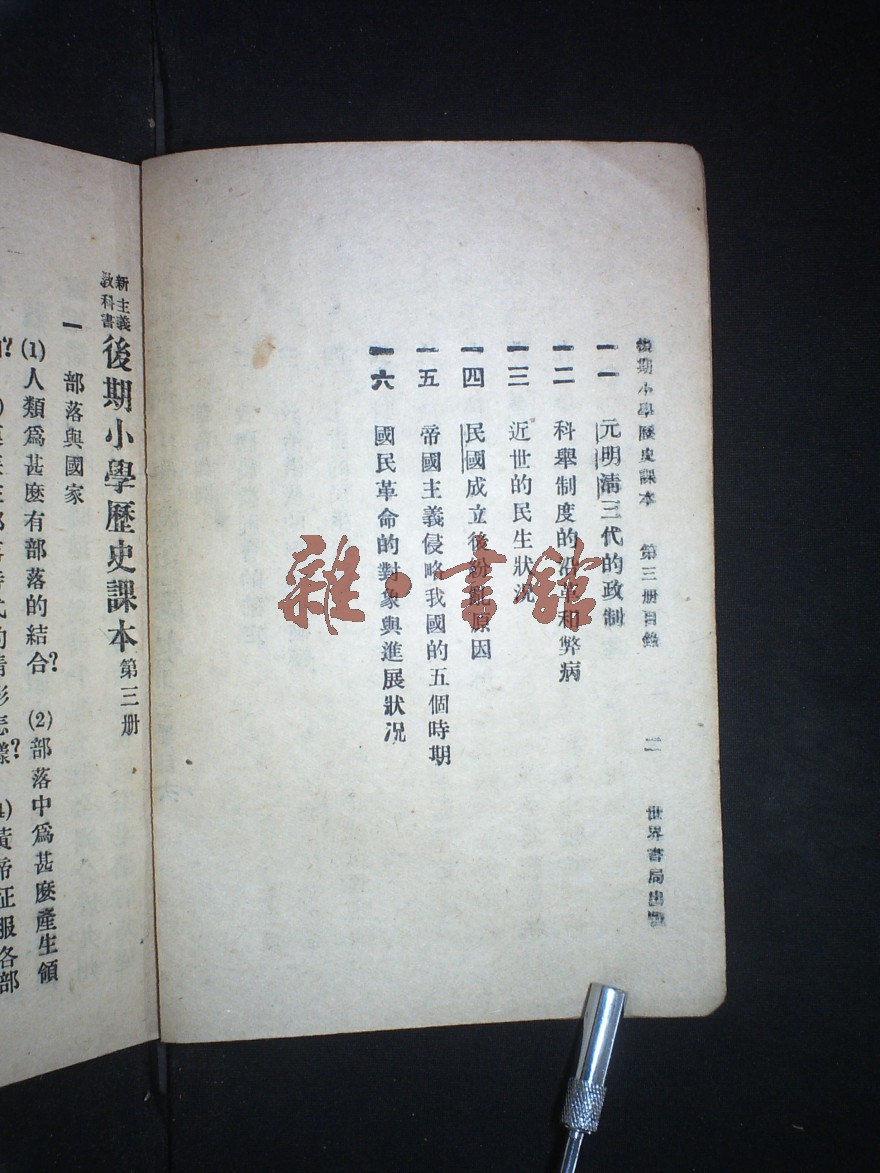 後期小學歷史課本　第三册目錄　二　世界書局出版
一一　元明清三代的政制
一二　科舉制度的沿革和弊病
一三　近世的民生狀況
一四　民國成立後紛亂原因
一五　帝國主義侵略我國的五個時期
一六　國民革命的對象與進展狀況
新主義教科書　後期小學歷史課本　第三册
一　部落與國家
(1)人類爲甚麼有部落的結合?　(2)部落中爲甚麼產生領
黃帝征服各部
雜·書館